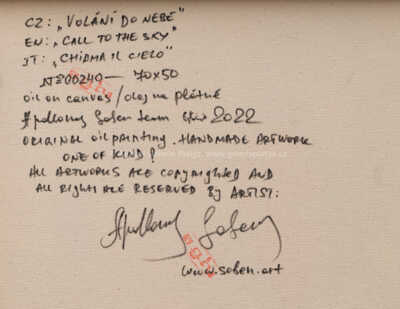 CZ: „VOLÁNÍ DO NEBE"
EN: „CALL TO THE SKY"
IT: „CHIAMA IL CIELO"
N200249 — 70x50
oil on canvas / olej na plátně
Apollonas Soben 2022
ORIGINAL oil painting. HANDMADE ARTWORK
ONE OF KIND!
ALL ARTWORKS ARE copyrighted AND
ALL Rights ARE RESERVED By ARTIST:
Apollonas Soben
www.soben.art